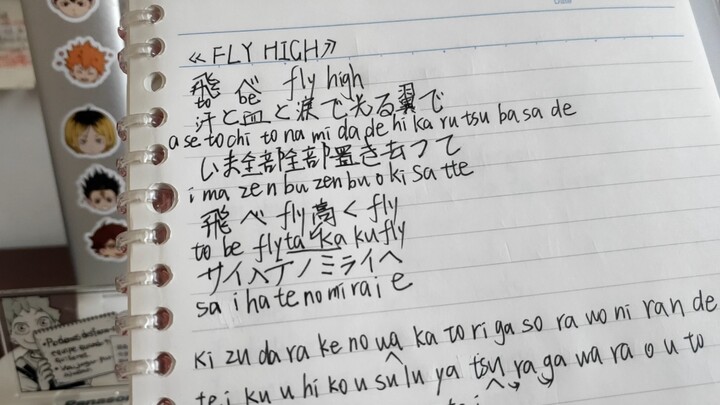 Date
《FLY HIGH》
飛べ fly high
to be
汗と血と涙で光る翼で
a se to chi to na mi da de hi ka ru tsu ba sa de
いま全部全部置き去って
i ma zen bu zen bu o ki sa tte
飛べ fly 高く fly
to be fly ta ka ku fly
サイハテノミライヘ
sa i ha te no mi ra i e
ki zu da ra ke no ua ka to ri ga so ra wo ni ran de
te i ku u hi ko u su lu ya tsu ra ga wa ra o u to